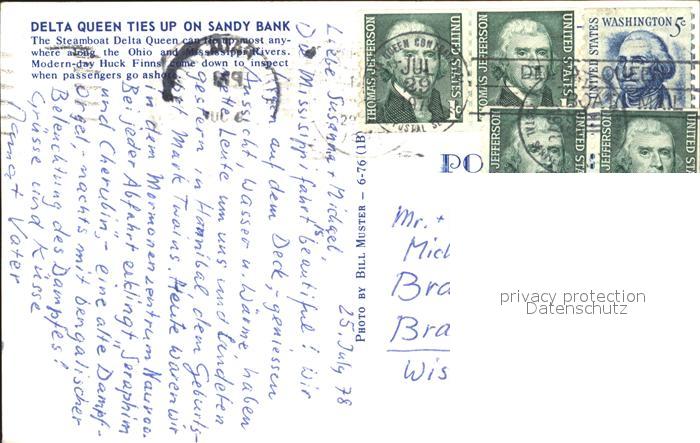 DELTA QUEEN TIES UP ON SANDY BANK
The Steamboat Delta Queen can tie up most any-
where along the Ohio and Mississippi Rivers.
Modern-day Huck Finns come down to inspect
when passengers go ashore.
25. July 78
Liebe Susanna + Michael,
Die Mississippifahrt is beautiful! Wir
auf dem Deck, - geniessen
Aussicht, Wasser u. Wärme haben
Leute um uns und landeten
gestern in Hannibal dem Geburts-
Mark Twains. Heute waren wir
in dem Mormonenzentrum Nauvoo.
Bei jeder Abfahrt erklingt "Seraphim
und Cherubin," - eine alte Dampf-
orgel, - nachts mit bengalischer
Beleuchtung des Dampfes!
Grüsse und Küsse
Vater
PHOTO BY BILL MUSTER — 6-76 (1B)
THOMAS JEFFERSON
UNITED STATES
1c
THOMAS JEFFERSON
UNITED STATES
WASHINGTON 5c
UNITED STATES
JEFFERSON
UNITED STATES
JEFFERSON
UNITED STATES
JUL
29
PO
Mr. +
Mic
Bra
Bra
Wis
privacy protection
Datenschutz